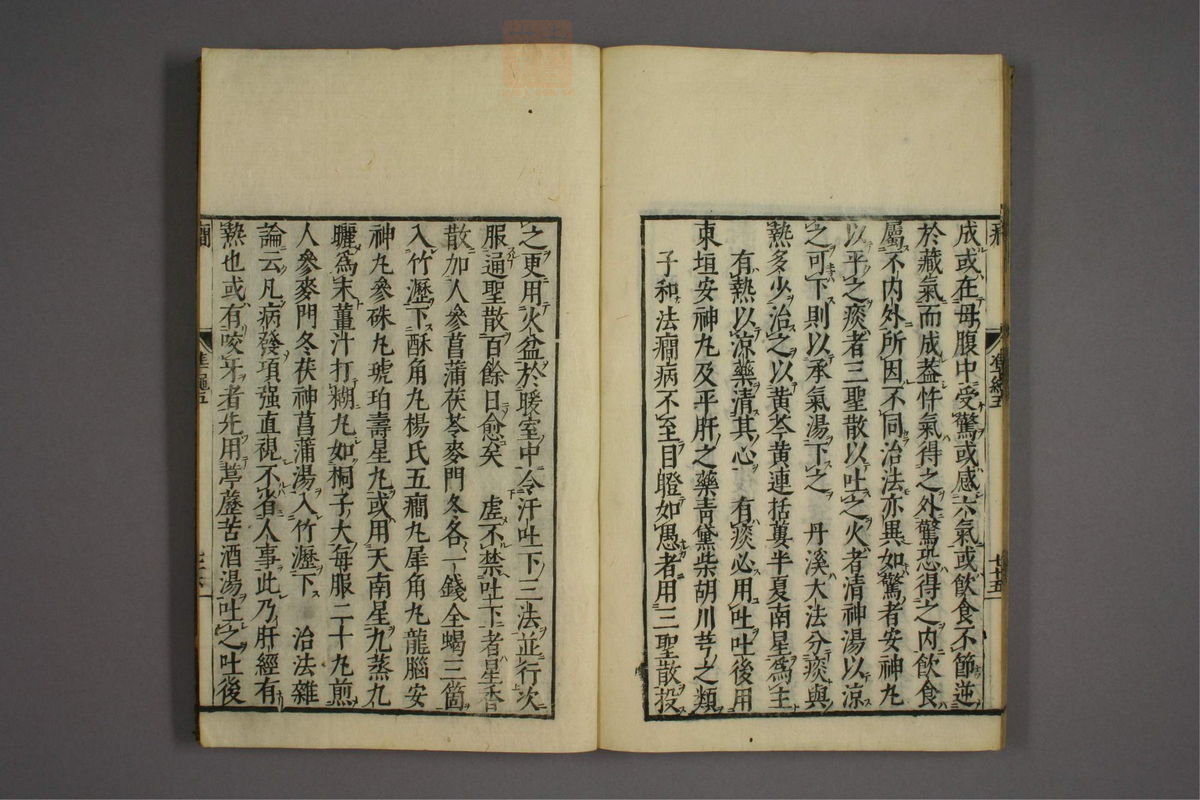 成或在母腹中受驚或感六氣或飲食不節逆
於藏氣而成蓋忤氣得之外驚恐得之内飲食
屬不内外所因不同治法亦異如驚者安神丸
以平之痰者三聖散以吐之火者清神湯以涼
之可下則以承氣湯下之　丹溪大法分痰與
熱多少治之以黄芩黄連括蔞半夏南星爲主
有熱以涼藥清其心　有痰必用吐吐後用
東垣安神丸及平肝之藥青黛柴胡川芎之類
子和法癎病不至目瞪如愚者用三聖散投
之更用火盆於暖室中令汗吐下三法並行次
服通聖散百餘日愈矣　虚不禁吐下者星香
散加人參菖蒲茯苓麥門冬各一錢全蝎三箇
入竹瀝下酥角丸楊氏五癎丸犀角丸龍腦安
神丸參硃丸琥珀壽星丸或用天南星九蒸九
曬爲末薑汁打糊丸如桐子大每服二十丸煎
人參麥門冬茯神菖蒲湯入竹瀝下　治法雜
論云凡病發項强直視不省人事此乃肝經有
熱也或有咬牙者先用葶藶苦酒湯吐之吐後
癎
準繩五